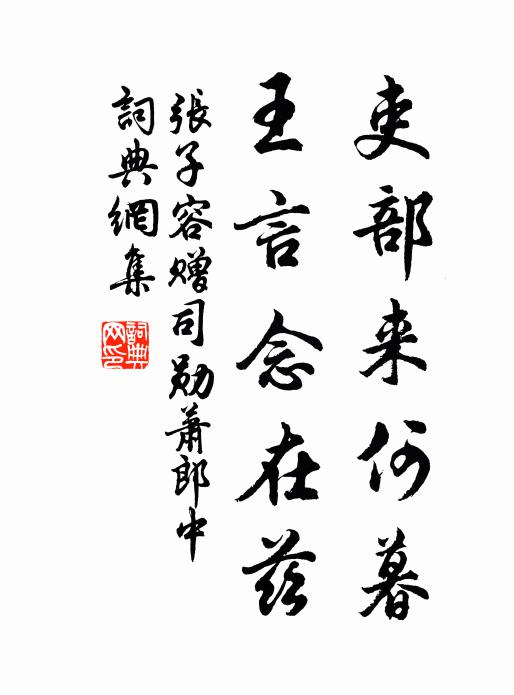 吏部来何暮
王言念在茲
張子容贈司勛蕭郎中
詞典網集
詞典網印